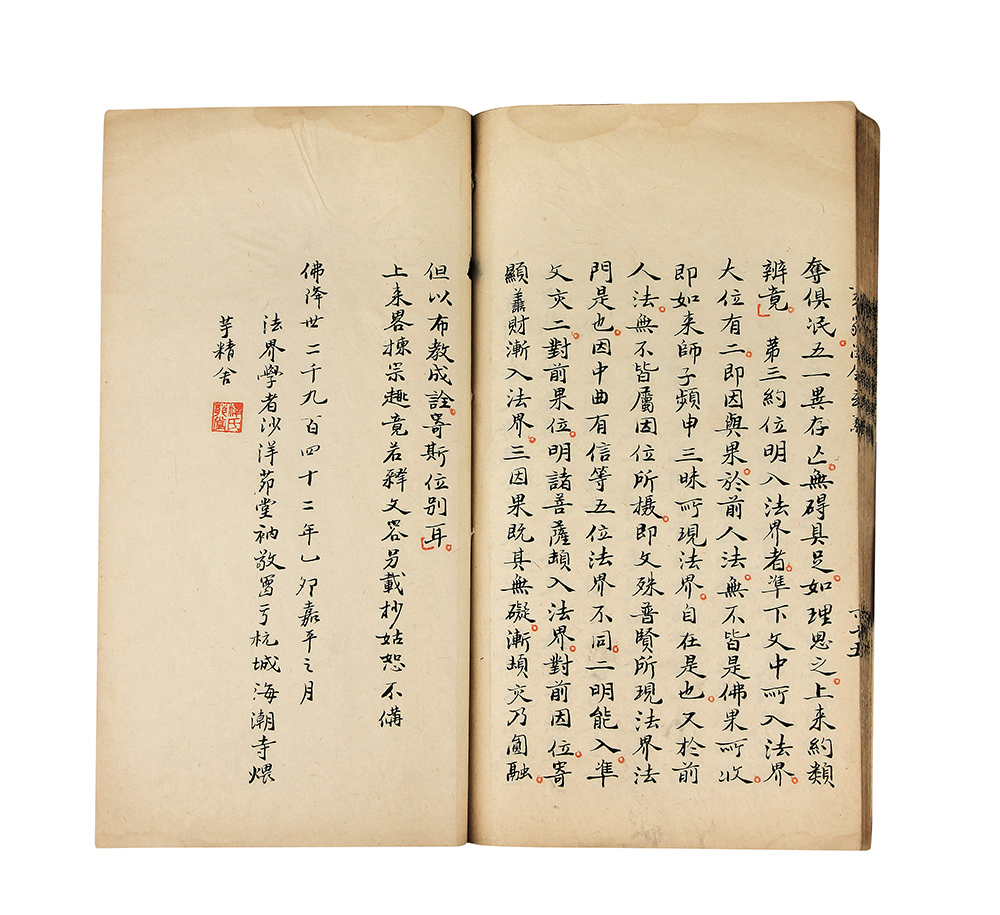 奪俱泯五一異存亾無碍具足如理思之上来約類
辨竟　第三約位明入法界者準下文中所入法界
大位有二即因與果於前人法無不皆是佛果所收
即如来師子頻申三昧所現法界自在是也又於前
人法無不皆屬因位所攝即文殊普賢所現法界法
門是也因中曲有信等五位法界不同二明能入準
文亦二對前果位明諸菩薩頓入法界對前因位寄
顯善財漸入法界三因果既其無礙漸頓亦乃圓融
但以布教成詮寄斯位別耳
上来畧揀宗趣竟若釋文畧另載抄姑恕不備
佛降世二千九百四十二年乙卯嘉平之月
法界學者沙洋茆堂衲敬寫于杭城海潮寺煨
芋精舍